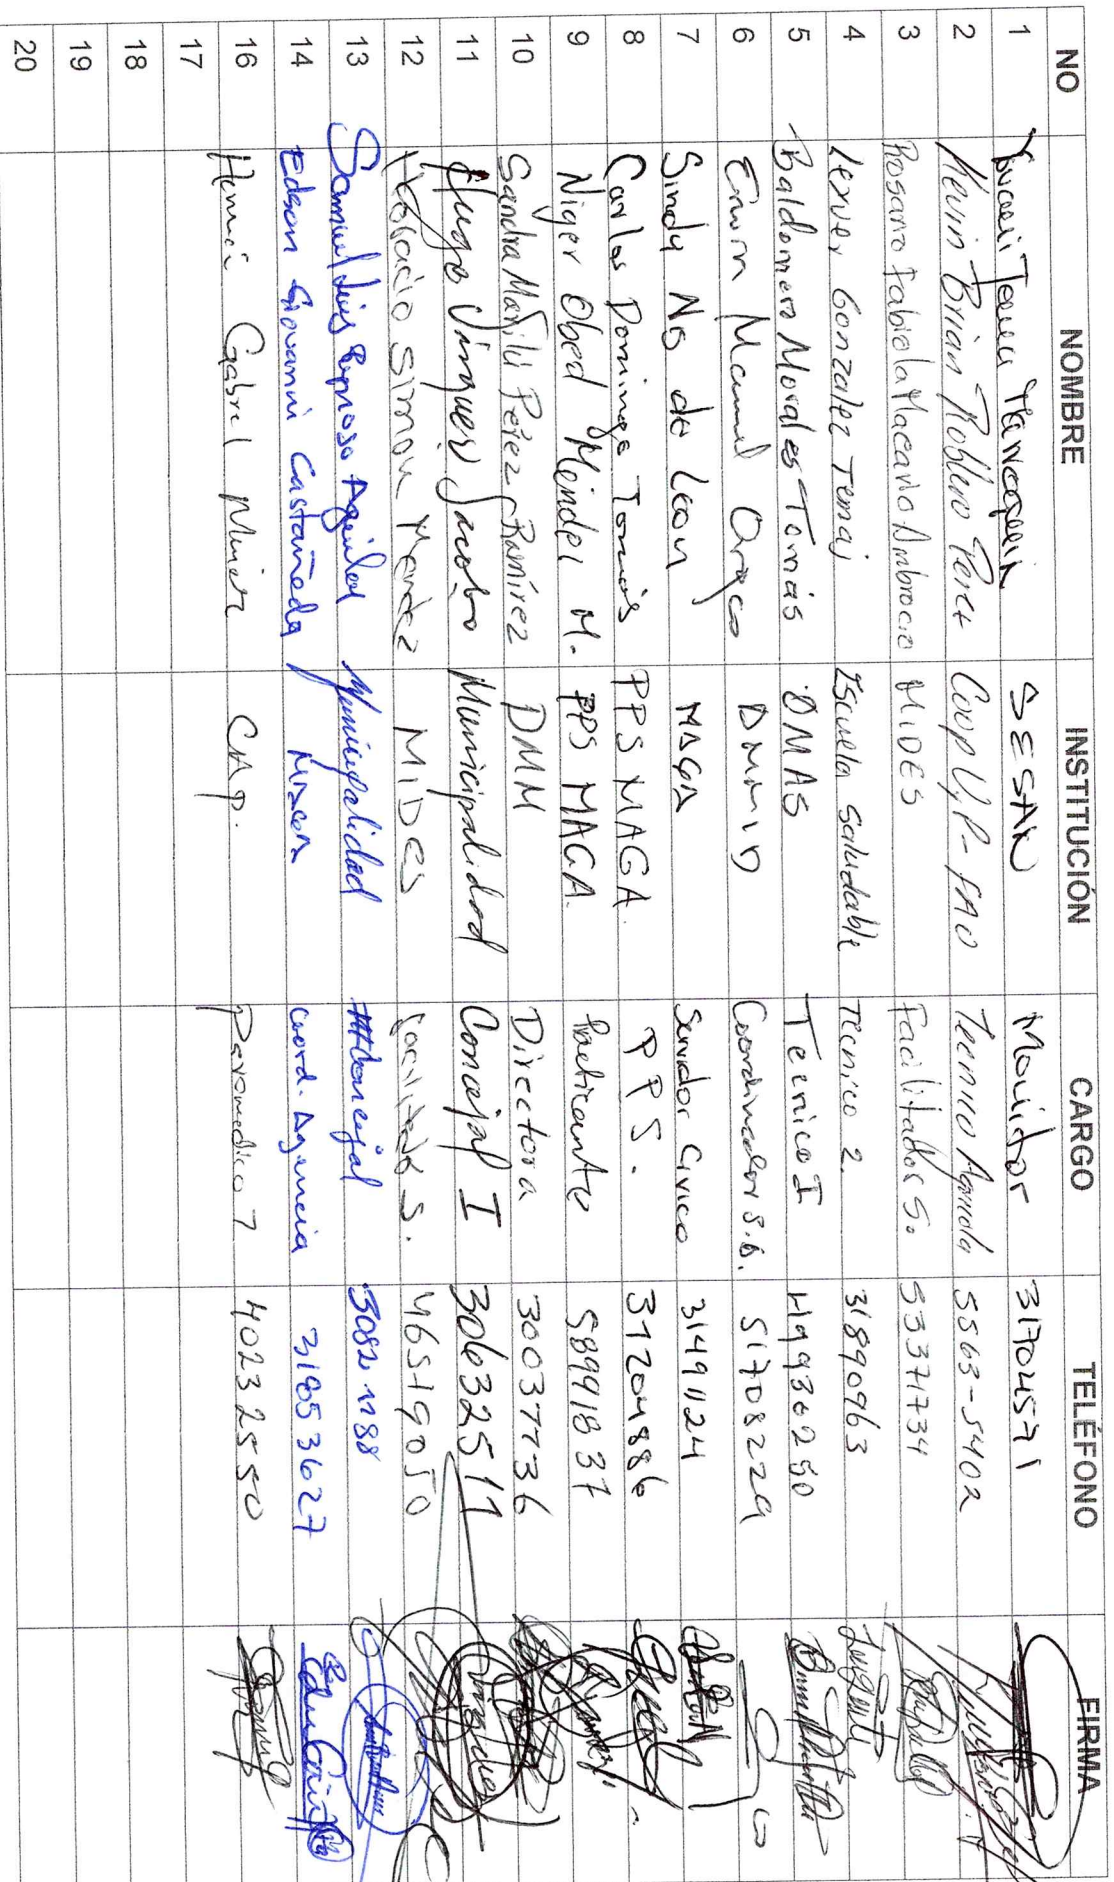 NO NOMBRE INSTITUCIÓN CARGO TELÉFONO FIRMA
1 SESAN Monitor 31704571
2 Kevin Brian Roblero Perez Coop U,P-FAO Tecnico Agricola 5563-5402
3 Rosario Fabiola Macario Ambrocio MIDES Facilitador S. 53371734
4 Lenver Gonzalez Temaj Escuela Saludable Tecnico 2. 31890963
5 Baldomero Morales Tomás OMAS Tecnico I 49930250
6 Manuel Orozco Coordinador 51708229
7 Sindy No de Leon MAGA Servidor Civico 31491124
8 Carlos Domingo Tomás PPS MAGA. PPS. 37204886
9 Niger Obed Méndez M. PPS MAGA. Practicante 58991837
10 Sandra Marilú Pérez Ramírez DMM Directora 30037736
11 Hugo Jacobo Municipalidad Concejal I 30632511
12 Simon Mendez MIDES S. 46519050
13 Samuel Luis Reynoso Aguilar Municipalidad III Concejal 3082 1188
14 Edson Giovanni Castañeda Coord. Agencia 31853627
16 Gabriel CAP. Paramedico 7 40232550
17
18
19
20